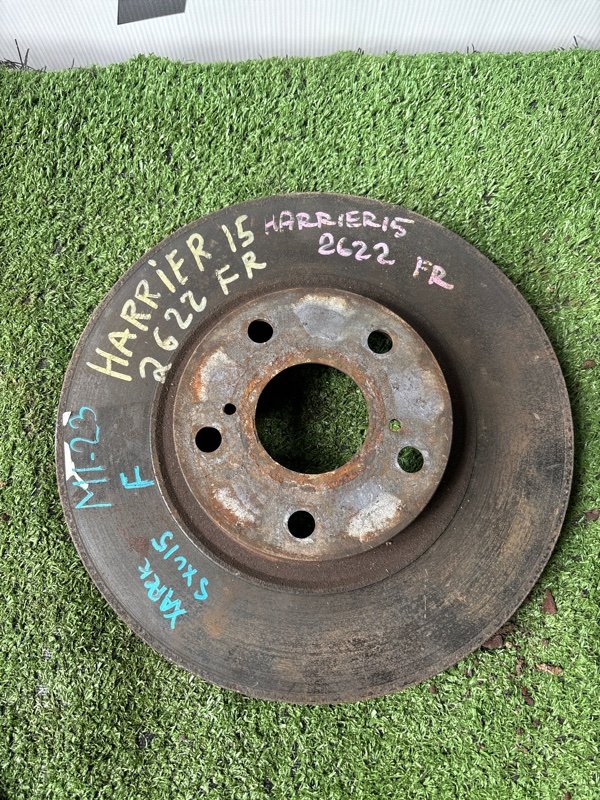 HARRIER 15
2622 FR
HARRIER15
2622 FR
MT-23
F
ХАРЬК
SXU15